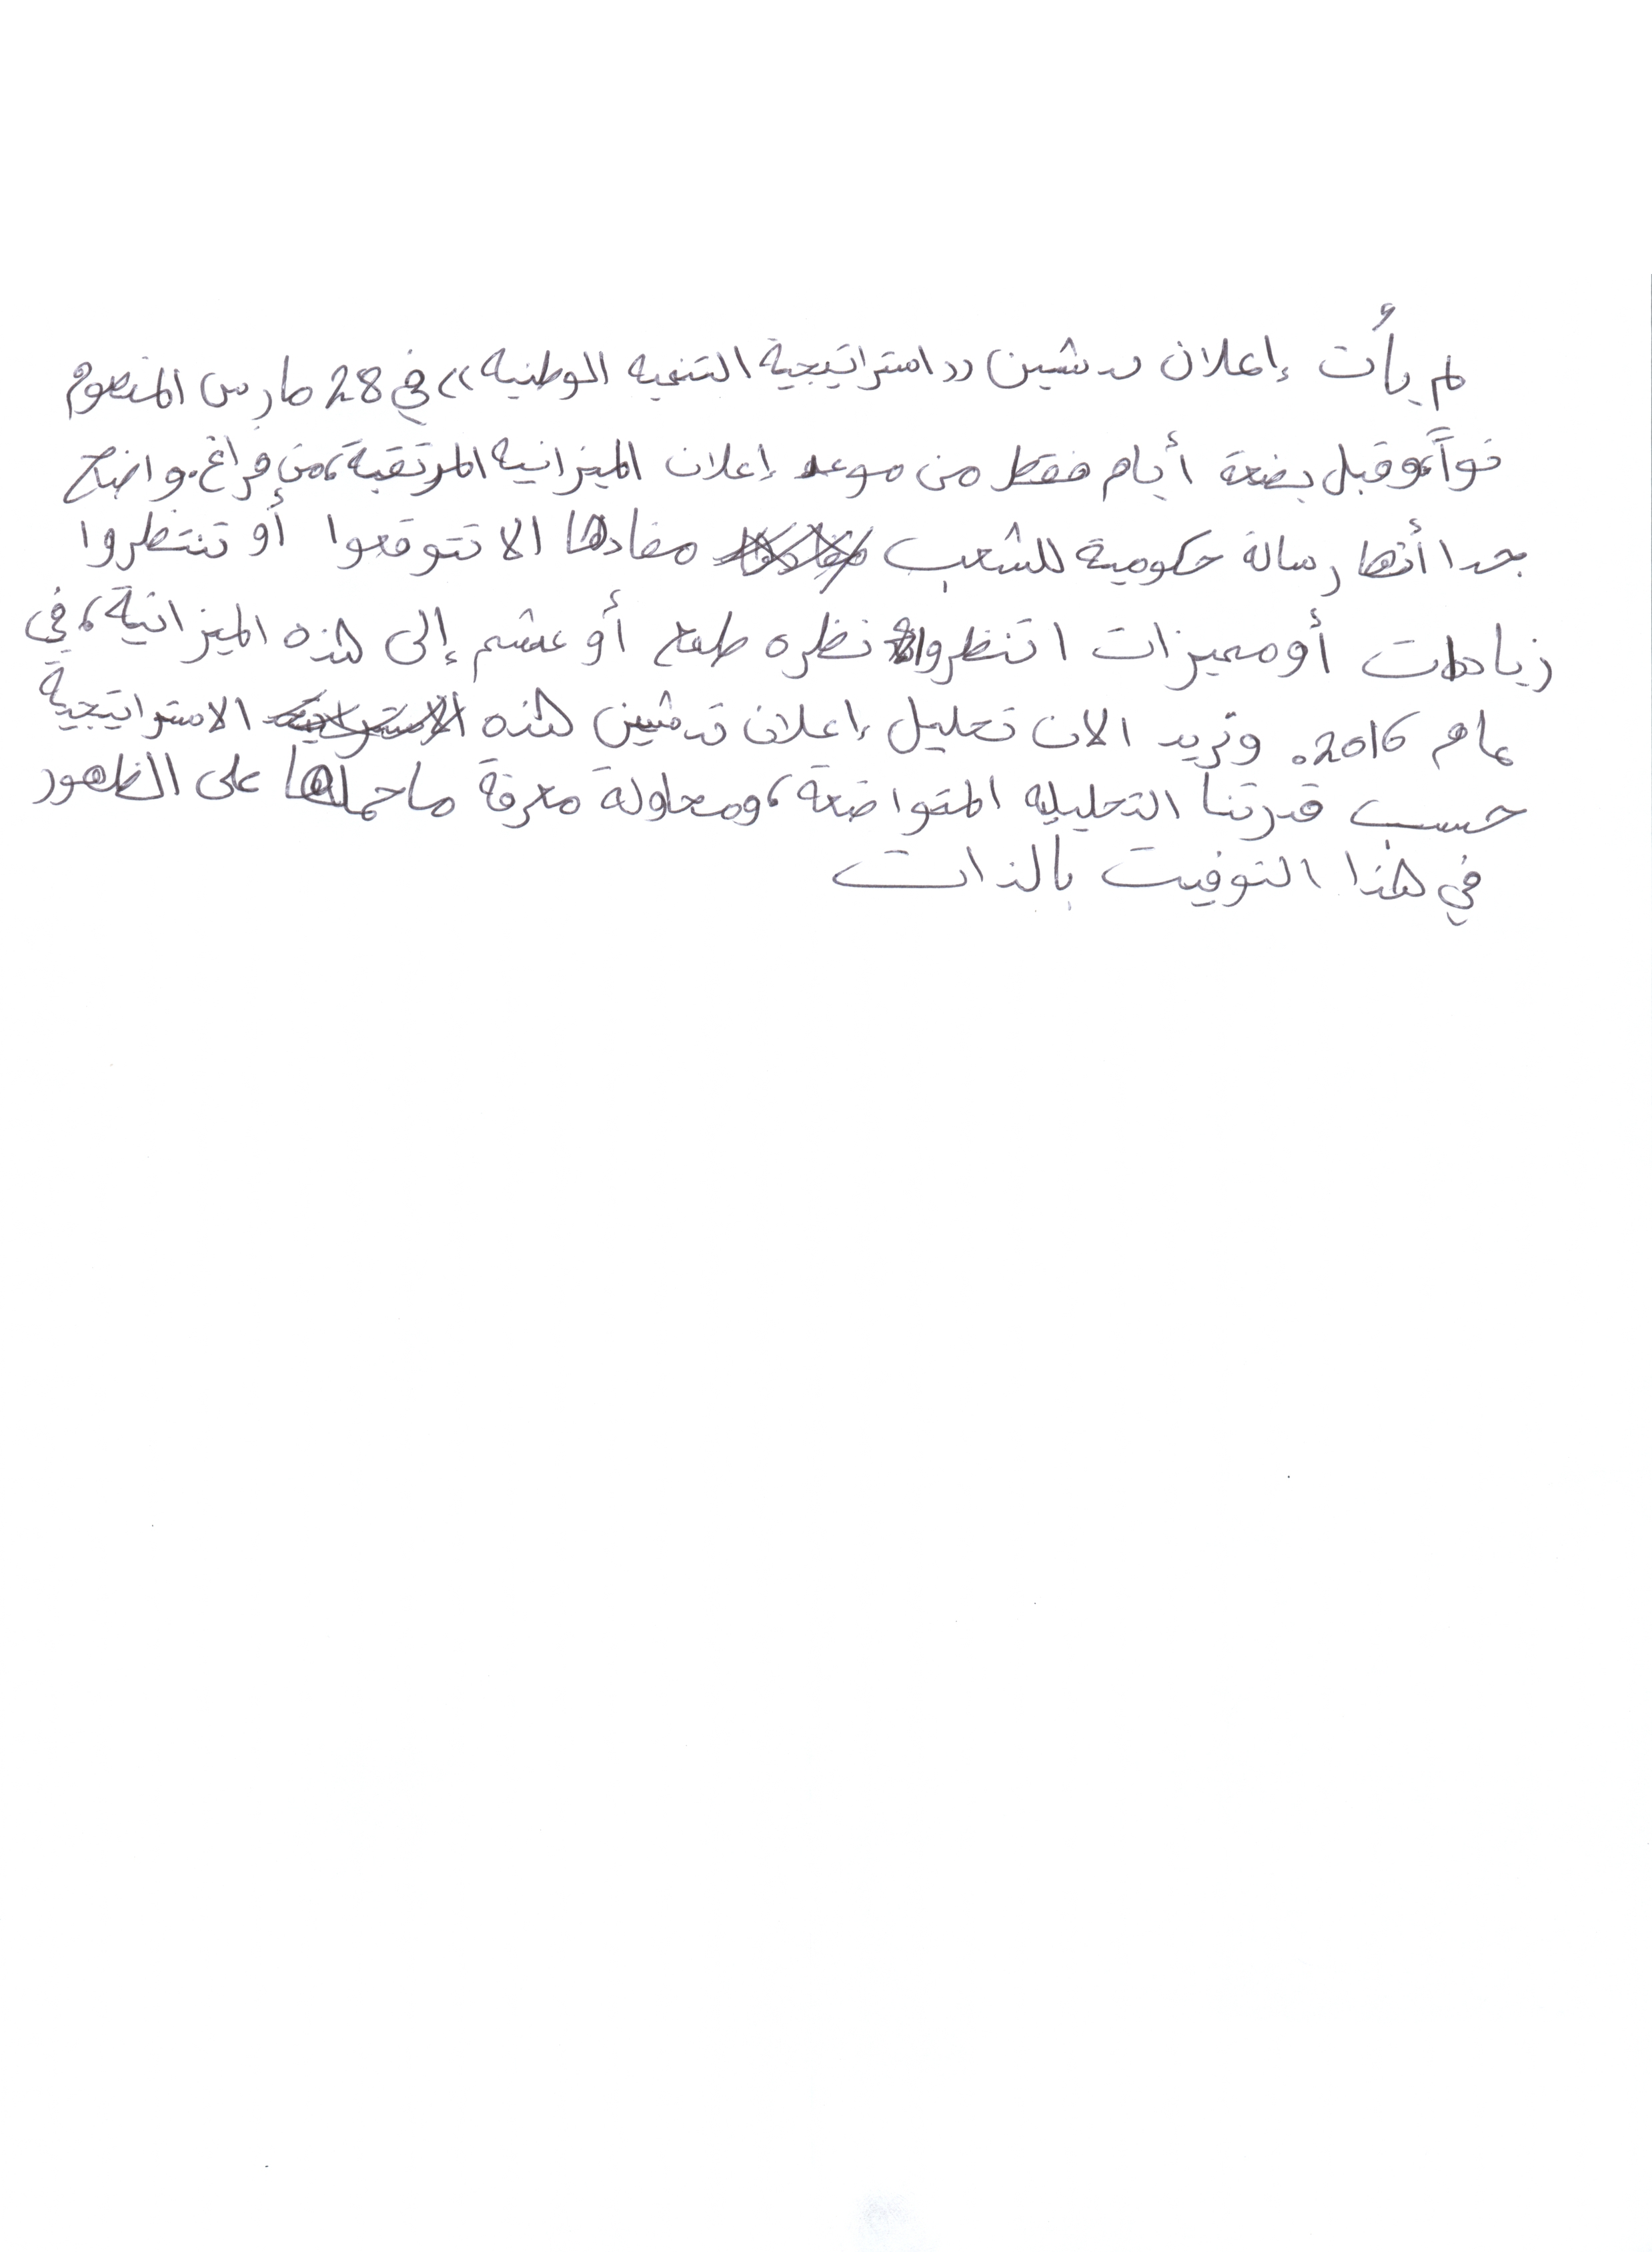 لم يأت إعلان تدشين ((استراتيجية التنميه الوطنيه)) في 28 مارس المنصوم
تواً، وقبل بضعة أيام فقط من موعد إعلان الميزانيه المرتقبة، من فراغ. واضح
جدا أنها رسالة حكومية للشعب مفادها الا تتوقعوا أو تنتظروا
زيادات أو مميزات اتنظروا نظره طمع أو عشم إلى هذه الميزانية، في
عام 2016. ونريد الان تحليل إعلان تدشين هذه الاستراتيجية
حسب قدرتنا التحليليه المتواضعة، ومحاولة معرفة ما حملها على الظهور
في هذا التوفيت بالذات